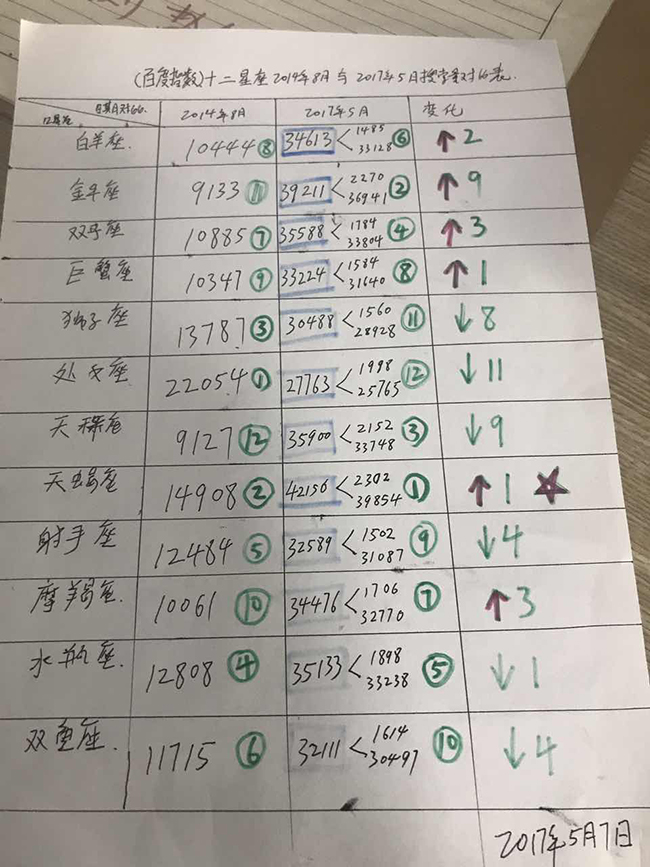 (百度指数)十二星座2014年8月与2017年5月搜索量对比表.
日期月对比 2014年8月 2017年5月 变化
白羊座. 10444 ⑧ 34613 < 1485 33128 ⑥ ↑2
金牛座 9133 ⑪ 39211 < 2270 36941 ② ↑9
双子座 10885 ⑦ 35588 < 1784 33804 ④ ↑3
巨蟹座 10347 ⑨ 33224 < 1584 31640 ⑧ ↑1
狮子座 13787 ③ 30488 < 1560 28928 ⑪ ↓8
处女座. 22054 ① 27763 < 1998 25765 ⑫ ↓11
天秤座 9127 ⑫ 35900 < 2152 33748 ③ ↓9
天蝎座 14908 ② 42156 < 2302 39854 ① ↑1 ★
射手座 12484 ⑤ 32589 < 1502 31087 ⑨ ↓4
摩羯座. 10061 ⑩ 34476 < 1706 32770 ⑦ ↑3
水瓶座. 12808 ④ 35133 < 1898 33238 ⑤ ↓1
双鱼座. 11715 ⑥ 32111 < 1614 30497 ⑩ ↓4
2017年5月7日